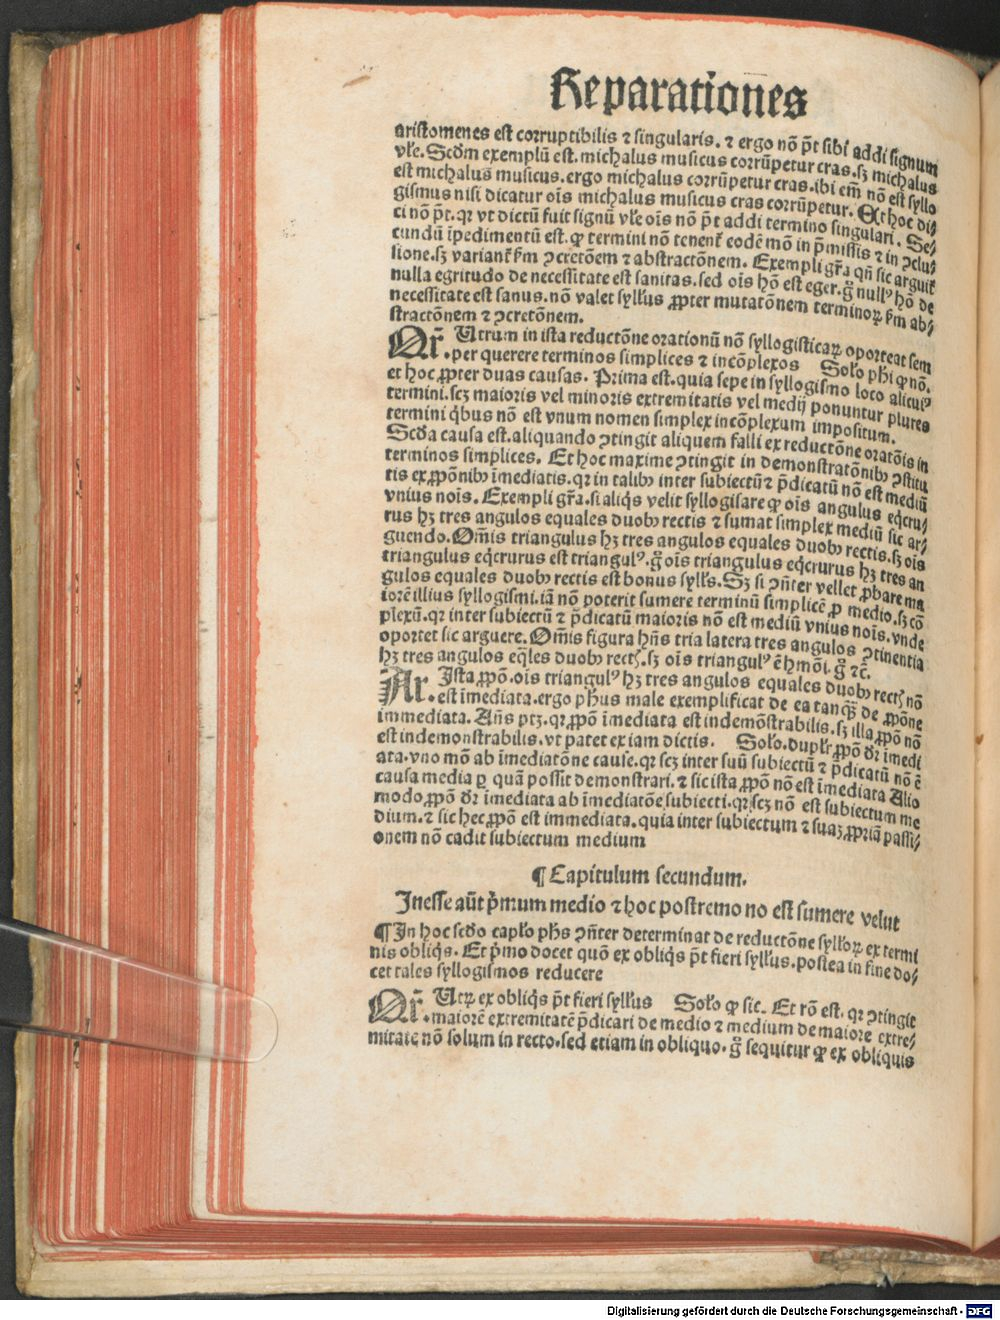 Reparationes
aristomenes est corruptibilis ⁊ singularis. ⁊ ergo nō pōt sibi addi signum
vl̄e. Scd̄m exemplū est. michalus musicus corrūpetur cras. sꝫ michalus
est michalus musicus. ergo michalus corrūpetur cras. ibi em̄ nō est syllo
gismus nisi dicatur oīs michalus musicus cras corrūpetur. Et hoc di⸗
ci nō pōt. qꝛ vt dictū fuit signū vl̄e oīs nō pōt addi termino singulari. Se⸗
cundū īpedimentū est. ꝙ termini nō tenent̄ eodē mō in p̄missis ⁊ in ꝯclu⸗
sione. sꝫ variant̄ ẜm ꝯcretōem ⁊ abstractōnem. Exempli gr̄a qn̄ sic arguit̄
nulla egritudo de necessitate est sanitas. sed oīs hō est eger. g̊ nullꝰ hō de
necessitate est sanus. nō valet syll̄us ꝓpter mutatōnem terminoꝝ ẜm ab⸗
stractōnem ⁊ ꝯcretōnem.
Qr̄. Utrum in ista reductōne orationū nō syllogisticaꝝ oporteat sem
per querere terminos simplices ⁊ incōplexos Solō ph̄i ꝙ nō.
et hoc ꝓpter duas causas. Prima est. quia sepe in syllogismo loco alicuiꝰ
termini. scꝫ maioris vel minoris extremitatis vel medij ponuntur plures
termini q̇bus nō est vnum nomen simplex incōplexum impositum.
Scd̄a causa est. aliquando ꝯtingit aliquem falli ex reductōne oratōis in
terminos simplices. Et hoc maxime ꝯtingit in demonstratōnibꝫ ꝯstitu
tis ex ꝓpōnibꝫ īmediatis. qꝛ in talibꝫ inter subiectū ⁊ p̄dicatū nō est mediū
vnius nois̄. Exempli gr̄a. si aliq̇s velit syllogisare ꝙ oīs angulus eq̇cru⸗
rus hꝫ tres angulos equales duobꝫ rectis ⁊ sumat simplex mediū sic ar⸗
guendo. Om̄is triangulus hꝫ tres angulos equales duobꝫ rectis. sꝫ oīs
triangulus eq̇crurus est triangulꝰ. g̊ oīs triangulus eq̇crurus hꝫ tres an
gulos equales duobꝫ rectis est bonus syll̄s. Sꝫ si ꝯn̄ter vellet ꝓbare ma
iorē illius syllogismi. iā nō poterit sumere terminū simplicē ꝓ medio. sꝫ cō
plexū. qꝛ inter subiectū ⁊ p̄dicatū maioris nō est mediū vnius nois̄. vnde
oportet sic arguere. Om̄is figura hn̄s tria latera tres angulos ꝯtinentia
hꝫ tres angulos eq̄les duobꝫ rectꝭ. sꝫ oīs triangulꝰ ē hmōi. g̊ ⁊c̄.
Ar̄. Ista ꝓpō. oīs triangulꝰ hꝫ tres angulos equales duobꝫ rectꝭ nō
est īmediata. ergo ph̄us male exemplificat de ea tanq̄ꝫ de ꝓpōne
immediata. An̄s ptꝫ. qꝛ ꝓpō īmediata est indemōstrabilis. sꝫ illa ꝓpō nō
est indemonstrabilis. vt patet ex iam dictis. Solō. dupl̄r ꝓpō dr̄ īmedi
ata. vno mō ab īmediatōne cause. qꝛ scꝫ inter suū subiectū ⁊ p̄dicatū nō ē
causa media ꝑ quā possit demonstrari. ⁊ sic ista ꝓpō nō est īmediata Alio
modo ꝓpō dr̄ īmediata ab īmediatōe subiecti. qꝛ scꝫ nō est subiectum me
dium. ⁊ sic hec ꝓpō est immediata. quia inter subiectum ⁊ suaꝫ ꝓpriā passi⸗
onem nō cadit subiectum medium
¶ Capitulum secundum.
Inesse aūt p̄mum medio ⁊ hoc postremo no est sumere velut
¶ In hoc scd̄o capl̄o ph̄s ꝯn̄ter determinat de reductōne syll̄oꝝ ex termi
nis obliq̇s. Et p̄mo docet quō ex obliq̇s pōt fieri syll̄us. postea in fine do⸗
cet tales syllogismos reducere
Qr̄. Utꝝ ex obliq̇s pōt fieri syll̄us Solō ꝙ sic. Et rō est. qꝛ ꝯtingit
maiorē extremitatē p̄dicari de medio ⁊ medium de maiore extre⸗
mitate nō solum in recto. sed etiam in obliquo. g̊ sequitur ꝙ ex obliquis
Digitalisierung gefördert durch die Deutsche Forschungsgemeinschaft - DFG